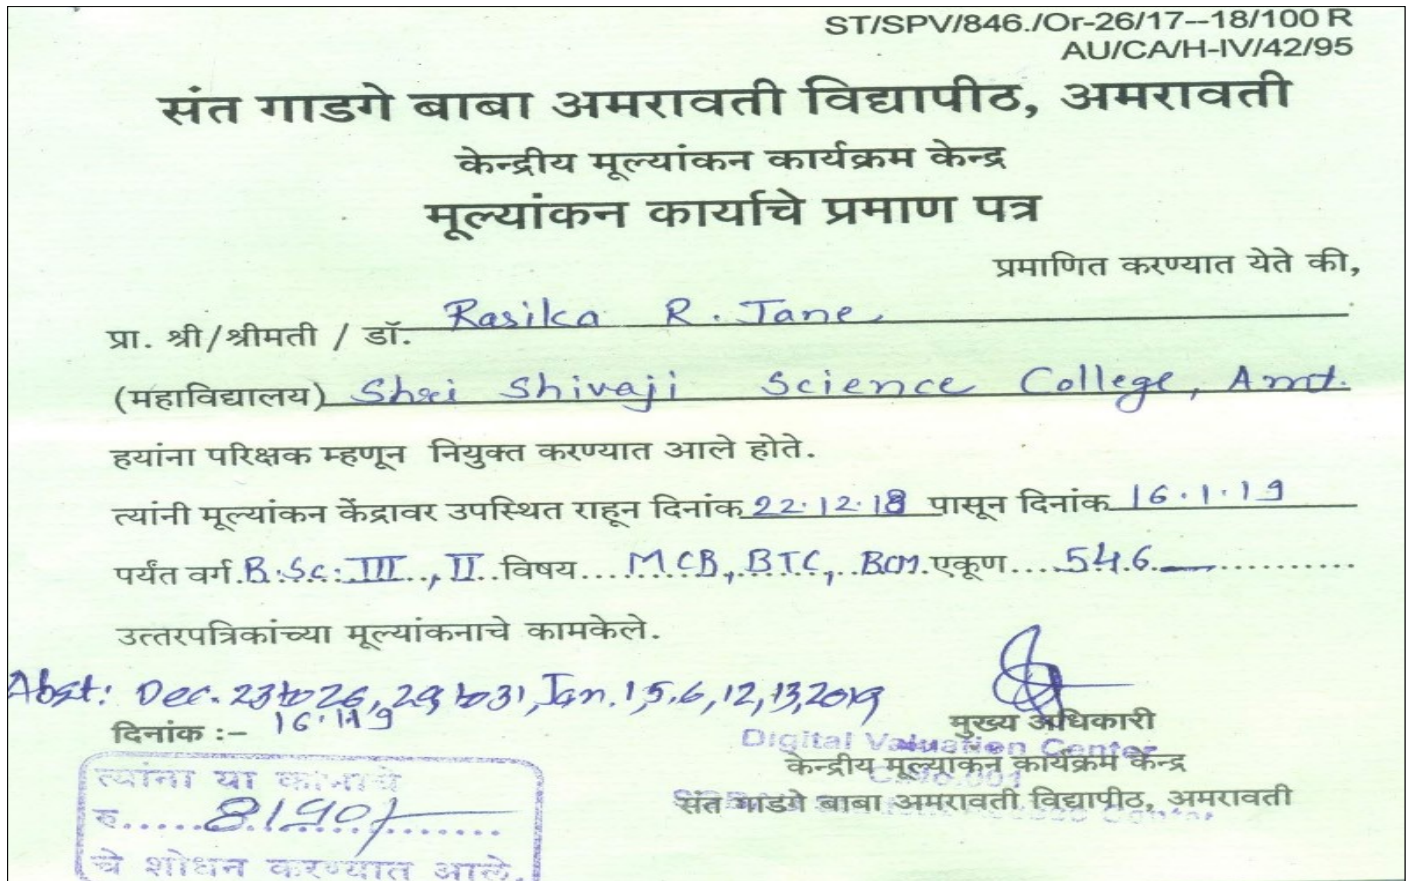 ST/SPV/846./Or-26/17--18/100 R
AU/CA/H-IV/42/95
संत गाडगे बाबा अमरावती विद्यापीठ, अमरावती
केन्द्रीय मूल्यांकन कार्यक्रम केन्द्र
मूल्यांकन कार्याचे प्रमाण पत्र
प्रमाणित करण्यात येते की,
प्रा. श्री/श्रीमती / डॉ. Rasika R. Tane
(महाविद्यालय) Shri Shivaji Science College, Amt.
हयांना परिक्षक म्हणून नियुक्त करण्यात आले होते.
त्यांनी मूल्यांकन केंद्रावर उपस्थित राहून दिनांक 22.12.18 पासून दिनांक 16.1.19
पर्यंत वर्ग. B.Sc. III, II विषय... MCB, BTC, BCM. एकूण.... 546
उत्तरपत्रिकांच्या मूल्यांकनाचे कामकेले.
Abst: Dec. 23 to 26, 29 to 31, Jan. 1, 5, 6, 12, 13, 2019
दिनांक :– 16.1.19
मुख्य अधिकारी
Digital Valuation Center
केन्द्रीय मूल्यांकन कार्यक्रम केन्द्र
संत गाडगे बाबा अमरावती विद्यापीठ, अमरावती
त्यांना या कामाचे
रु..... 8190/-
चे शोधन करण्यात आले.